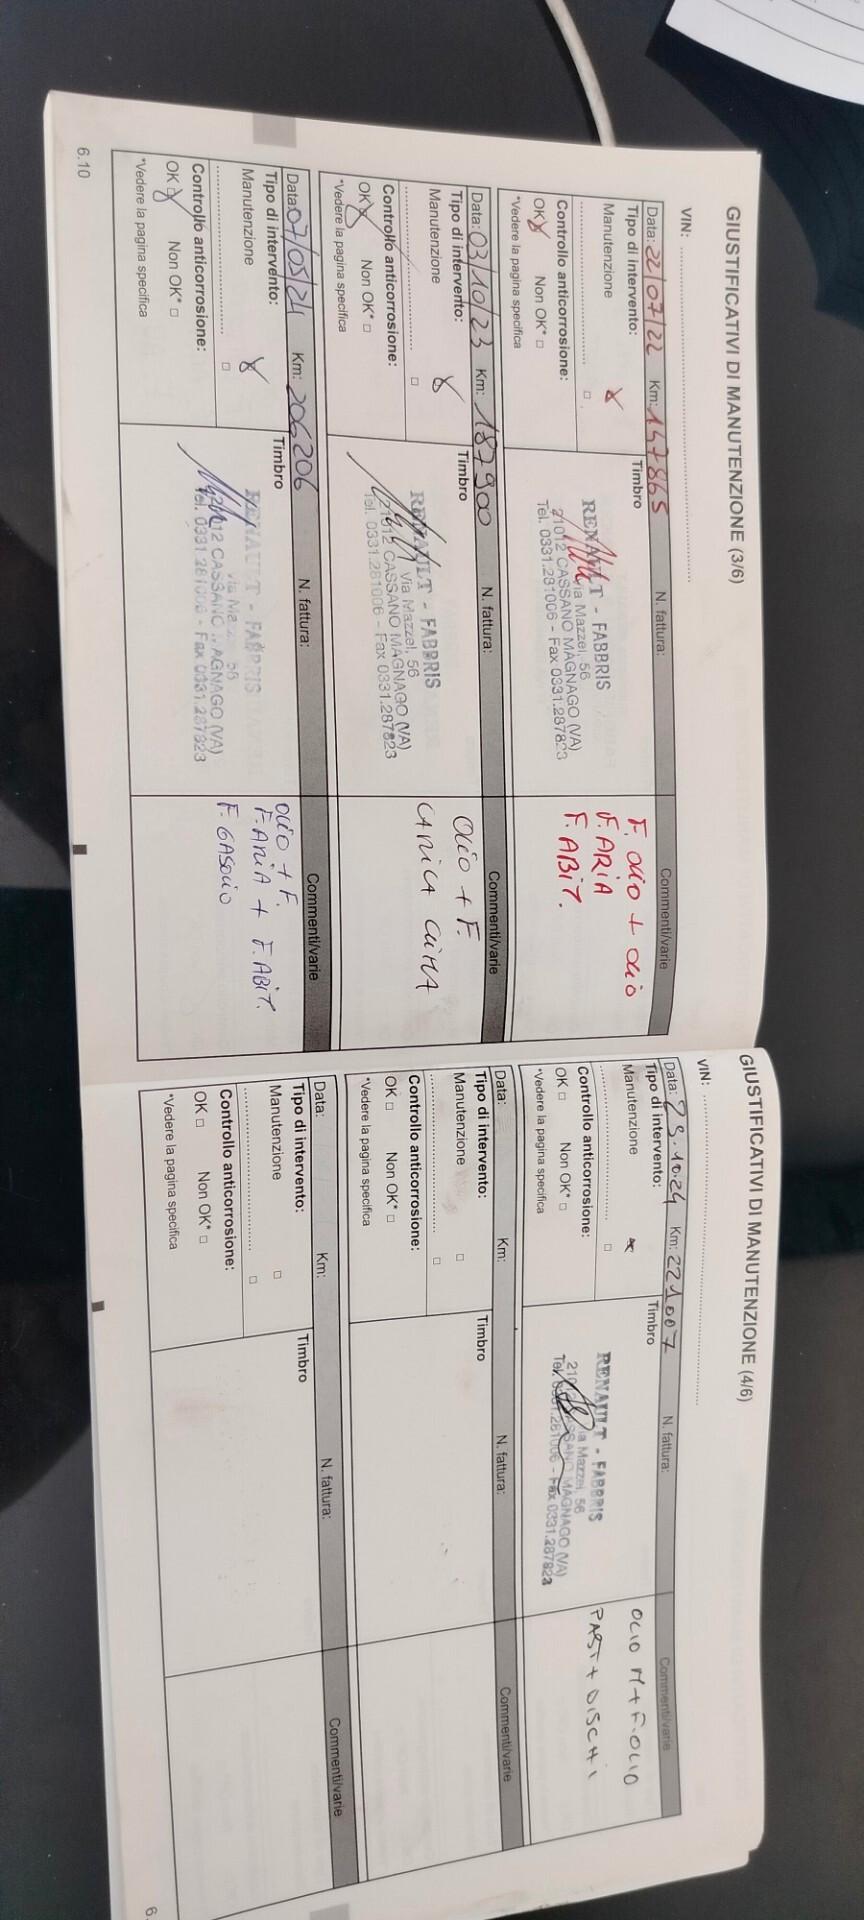 GIUSTIFICATIVI DI MANUTENZIONE (3/6)
VIN:
Data: 22/07/22 Km: 147865 N. fattura: Commenti/varie
Tipo di intervento:
Manutenzione X
Controllo anticorrosione:
OK X Non OK* □
*Vedere la pagina specifica
Timbro
RENAULT - FABBRIS
Via Mazzei, 56
21012 CASSANO MAGNAGO (VA)
Tel. 0331.281006 - Fax 0331.287823
F. OLIO + OLIO
F. ARIA
F. ABIT.
Data: 03/10/23 Km: 187900 N. fattura: Commenti/varie
Tipo di intervento:
Manutenzione X
Controllo anticorrosione:
OK X Non OK* □
*Vedere la pagina specifica
Timbro
RENAULT - FABBRIS
Via Mazzei, 56
21012 CASSANO MAGNAGO (VA)
Tel. 0331.281006 - Fax 0331.287823
OLIO + F.
CARICA CLIMA
Data: 07/05/24 Km: 206206 N. fattura: Commenti/varie
Tipo di intervento:
Manutenzione X
Controllo anticorrosione:
OK X Non OK* □
*Vedere la pagina specifica
Timbro
RENAULT - FABBRIS
Via Mazzei, 56
21012 CASSANO MAGNAGO (VA)
Tel. 0331.281006 - Fax 0331.287823
OLIO + F.
F. ARIA + F. ABIT.
F. GASOLIO
6.10
GIUSTIFICATIVI DI MANUTENZIONE (4/6)
VIN:
Data: 29.10.24 Km: 221007 N. fattura: Commenti/varie
Tipo di intervento:
Manutenzione X
Controllo anticorrosione:
OK □ Non OK* □
*Vedere la pagina specifica
Timbro
RENAULT - FABBRIS
Via Mazzei, 56
21012 CASSANO MAGNAGO (VA)
Tel. 0331.281006 - Fax 0331.287823
OLIO M + F. OLIO
PAST + DISCHI
Data: Km: N. fattura: Commenti/varie
Tipo di intervento:
Manutenzione □
Controllo anticorrosione:
OK □ Non OK* □
*Vedere la pagina specifica
Timbro
Data: Km: N. fattura: Commenti/varie
Tipo di intervento:
Manutenzione □
Controllo anticorrosione:
OK □ Non OK* □
*Vedere la pagina specifica
Timbro
6.